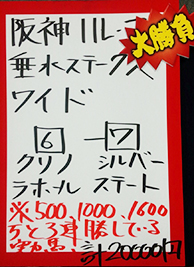 阪神11レース
大勝負
垂水ステークス
ワイド
6 ー 7
クリノ シルバー
ラホール ステート
※500、1000、1600
万と3連勝している
実力馬、計20000円